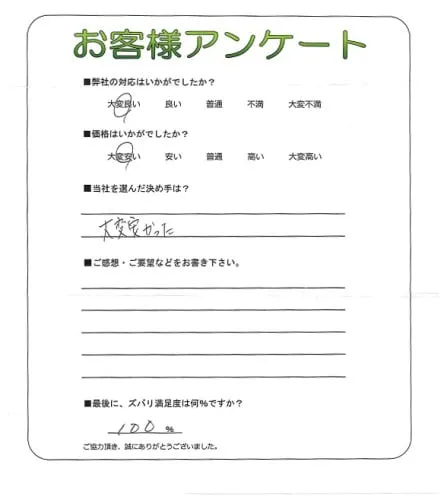 お客様アンケート
■弊社の対応はいかがでしたか？
大変良い 良い 普通 不満 大変不満
■価格はいかがでしたか？
大変安い 安い 普通 高い 大変高い
■当社を選んだ決め手は？
大変安かった
■ご感想・ご要望などをお書き下さい。
■最後に、ズバリ満足度は何％ですか？
100 %
ご協力頂き、誠にありがとうございました。